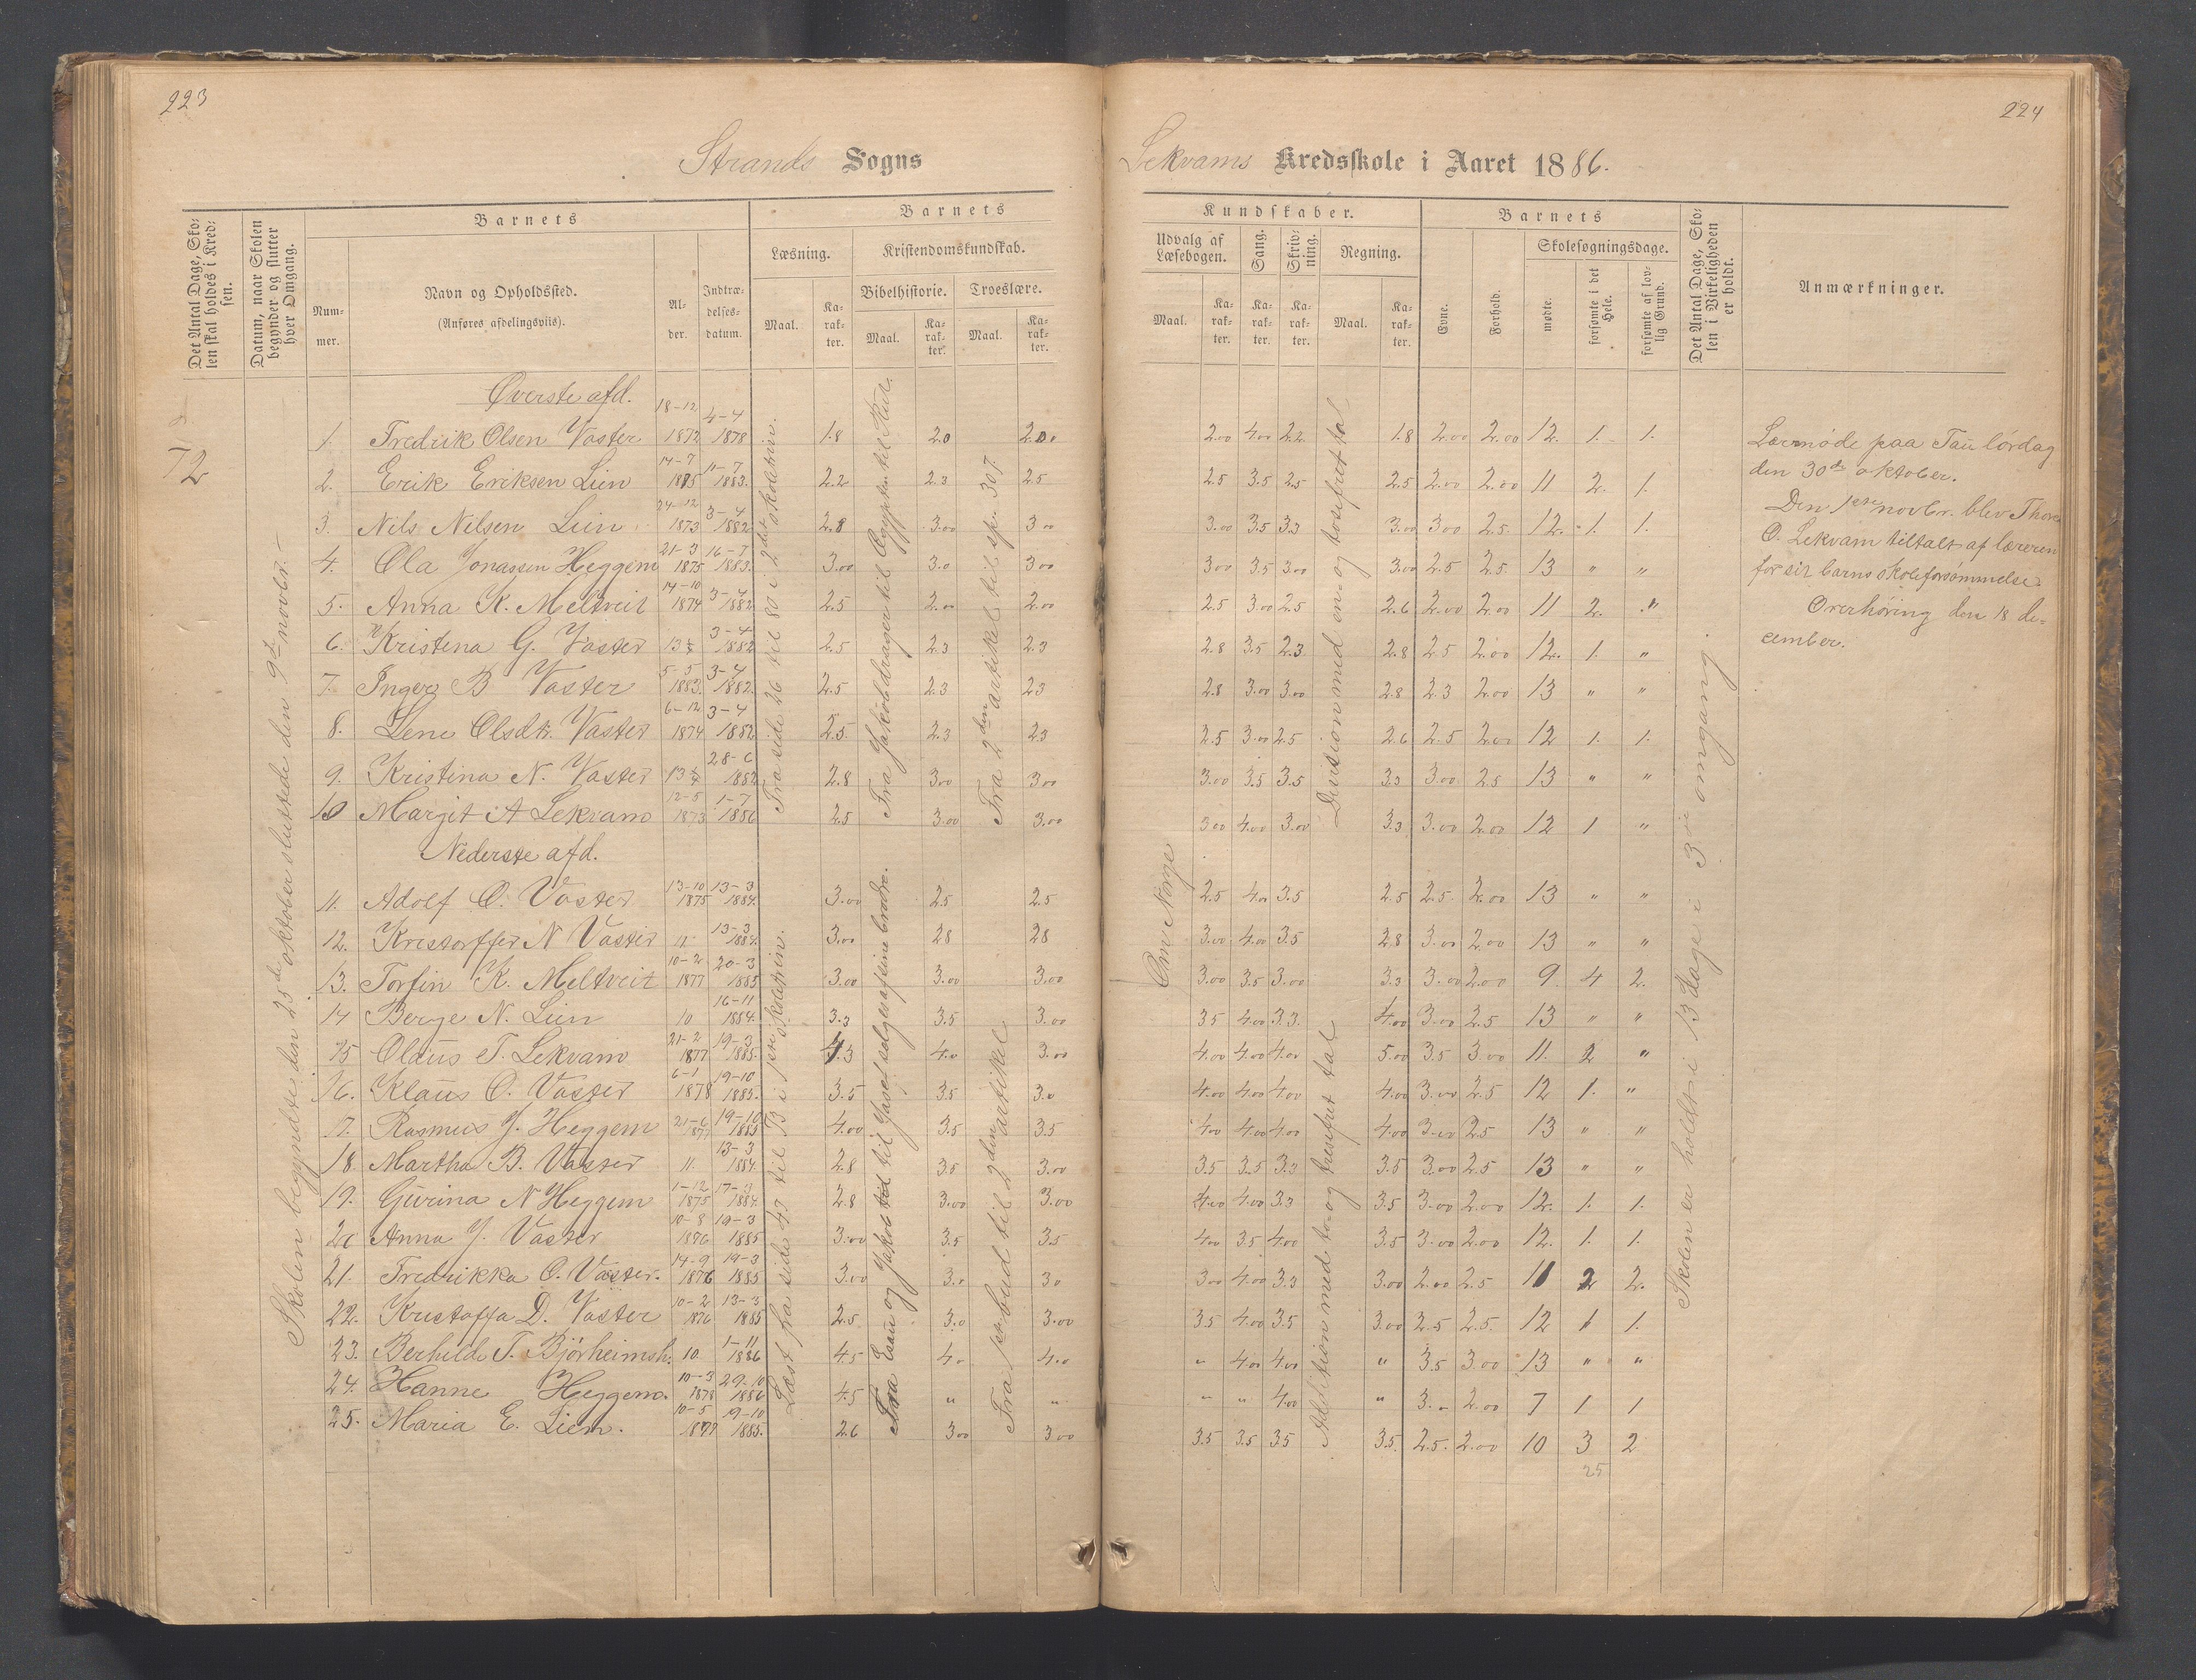 223
Strands Sogns
Det Antal Dage, Sko-
len skal holdes i Kred-
sen.
Datum, naar Skolen
begynder og slutter
hver Omgang.
Barnets
Num-
mer.
Navn og Opholdssted.
(Anføres afdelingsviis).
Al-
der.
Indtræ-
delses-
datum.
Barnets
Læsning.
Maal.
Ka-
rak-
ter.
Kristendomskundskab.
Bibelhistorie.
Maal.
Ka-
rak-
ter.
Troeslære.
Maal.
Ka-
rak-
ter.
72
Skolen begyndte den 25de oktober sluttede den 9de novbr.
Øverste afd.
1. Fredrik Olsen Vaster 18-12 1872 4-4 1878 1.8 2.0 2.00
2. Erik Eriksen Lien 14-7 1875 11-7 1883. 2.2 2.3 2.5
3. Nils Nilsen Lien 24-12 1873 3-4 1882 2.8 3.00 3.00
4. Ola Jonassen Heggem 21-3 1875 16-7 1883. 3.00 3.0 3.00
5. Anna K. Meltveit 14-10 1874 3-4 1882 2.5 2.00 2.00
6. Kristena G. Vaster 3-4 1882 2.5 2.3 2.3
7. Inger B Vaster 5-5 1883. 3-4 1882. 2.5 2.3 2.3
8. Lene Olsdtr. Vaster 6-12 1874 3-4 1882 2.5. 2.3 2.3
9. Kristina N. Vaster 28-6 1882 2.8 3.00 3.00
10 Margit A Lekvam 12-5 1873 1-7 1886 2.5 3.00 3.00
Nederste afd.
11. Adolf O. Vaster 13-10 1875 13-3 1884. 3.00 2.5 2.5
12. Kristorffer N Vaster 11 13-3 1884. 3.00 2.8 2.8
13. Torfin K. Meltveit 10-2 1877 20-3 1885 3.00 3.00 3.00
14 Berge N. Lien 10 16-11 1884. 3.3 3.5 3.00
15 Olaus T. Lekvam 21-2 1877 19-3 1885. 4.3 4.0 3.00
16. Klaus O. Vaster 6-1 1878 19-10 1885. 3.5 3.5 3.0
17. Rasmus J. Heggem 21-6 1877 19-10 1885 4.00 3.5 3.5
18. Martha B. Vaster 11. 13-3 1884. 2.8 3.5 3.00
19. Gurina N Heggem 1-12 1875 17-3 1884. 2.8 3.00 3.00
20 Anna J. Vaster 10-8 1876 19-3 1885 3.00 3.5 3.5
21. Fredrikka O. Vaster. 14-9 1876 19-3 1885 3.00 3.0 3.0
22. Kristoffa D. Vaster 10-2 1876 13-3 1885 2.5. 3.0 3.00
23. Berhilde T. Bjørheimsh. 10. 1-11 1886 4.5 4.0 4.0
24. Hanne Heggem. 10-3 1878 29-10 1886 4.5 " "
25. Maria E. Liem. 10-5 1877 19-10 1885. 2.6 3.00 3.00
Fra side 26 til 80 i 2det skoletrin.
Fra Jakobs drager til Ægypten til Rut.
Fra 2den artikel til sp. 307.
Læst fra side 47 til B i 1ste skoletrin.
Fra Esau og Jakob til Josef sælges af sine brødre.
Fra 1ste bud til 2den artikel
224
Lekvams Kredsskole i Aaret 1886.
Kundskaber.
Udvalg af
Læsebogen.
Maal.
Ka-
rak-
ter.
Sang.
Ka-
rak-
ter.
Skriv-
ning.
Ka-
rak-
ter.
Regning.
Maal.
Ka-
rak-
ter.
Barnets
Evne.
Forhold.
Skolesøgningsdage.
mødte.
forsømte i det
Hele.
forsømte af lov-
lig Grund.
Det Antal Dage, Sko-
len i Virkeligheden
er holdt.
Anmærkninger.
2.00 4.00 2.2 1.8 2.00 2.00 12. 1. 1.
2.5 3.5 2.5 2.5 2.00 2.00 11 2. 1.
3.00 3.5 3.3 3.00 3.00 2.5. 12. 1. 1.
3.00 3.5 3.00 3.00 2.5 2.5. 13 " "
2.5 3.00 2.5 2.6 2.00 2.00 11 2. "
2.8 3.5 2.3 2.8 2.5 2.00 12. 1. "
2.8 3.00 3.00 2.8 2.3 2.00 13 " "
2.5 3.00 2.5 2.6 2.5 2.00 12 1. 1.
3.00 3.5 3.5 3.3 3.00 2.5 13 " "
3.00 4.00 3.00 3.3 3.00 2.00 12 1 "
2.5 4.00 3.5 2.5 2.5. 2.00 13 " "
3.00 4.00 3.5 2.8 3.00 2.00 13 " "
3.00 3.5 3.00 3.3 3.00 2.00 9. 4 2.
3.5 4.00 3.3. 4.00 3.00 2.5 13 " "
4.00 4.00 4.00 5.00 3.5 3.00 11. 2 "
4.00 4.00 4.00 4.00 3.00 2.5 12 1. "
4.00 4.00 4.00 4.00 3.00 2.5 13 " "
3.5 3.5 3.3 3.5 3.00 2.5 13 " "
4.00 4.00 3.3 3.5 3.00 2.00 12. 1. 1.
4.00 3.5 4.00 3.5 3.00 2.00 12. 1. 1.
3.00 4.00 3.3 3.00 2.00 2.5 11 2 2.
3.5 4.00 3.5 3.00 2.5 2.5. 12 1 1.
" 4.00 4.00 " 3.5 3.00 13 " "
" " 4.00 " 3. 2.00 7 1 1
3.5 3.5 3.5 3.5. 2.5. 2.00 10 3 2
25
Om Norge
Division med en- og tosifret tal
Addition med to- og tresifret tal
Skolen er holdt i 13 dage i 3die omgang.
Lærmøde paa Tau lördag
den 30de oktober.
Den 1ste novbr. blev Thore
O. Lekvam tiltalt af læreren
for sit barns skoleforsømmelse.
Overhøring den 18 de-
cember.